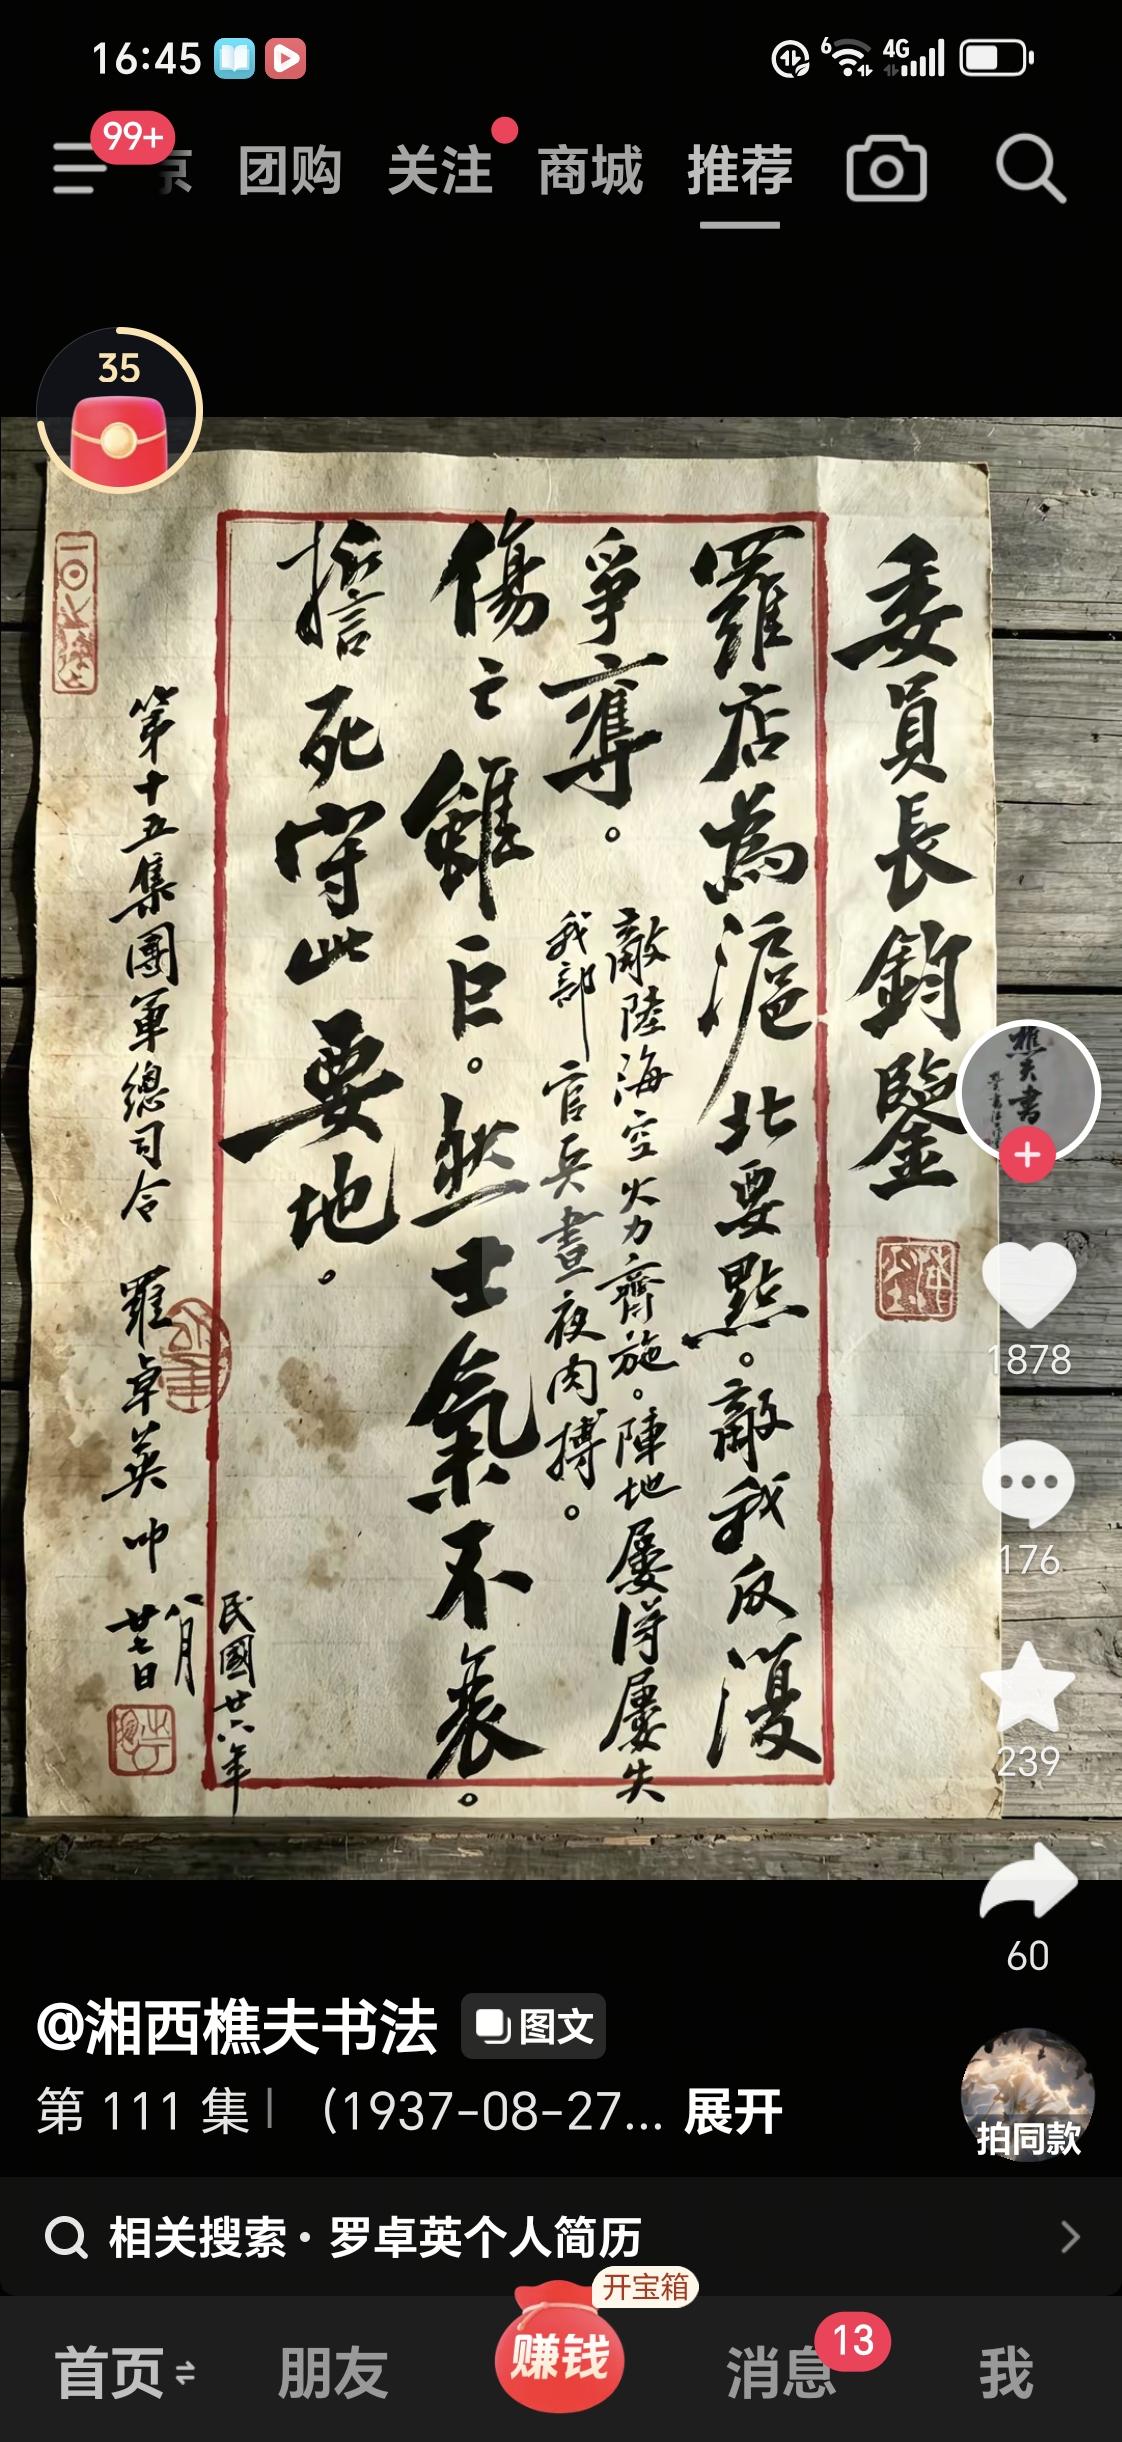 16:45
6
4G
99+
京 团购 关注 商城 推荐
35
委員長鈞鑒
羅店為滬北要點。敵我反復
爭奪。
敵陸海空火力齊施。陣地屢得屢失
我部官兵晝夜肉搏。
傷亡雖巨。然士氣不衰。
誓死守此要地。
民國廿六年
八月
廿七日
第十五集團軍總司令 羅卓英 叩
樵夫書
1878
176
239
60
@湘西樵夫书法 图文
第 111 集 | (1937-08-27... 展开
拍同款
相关搜索·罗卓英个人简历
开宝箱
首页 朋友 赚钱 消息 13 我